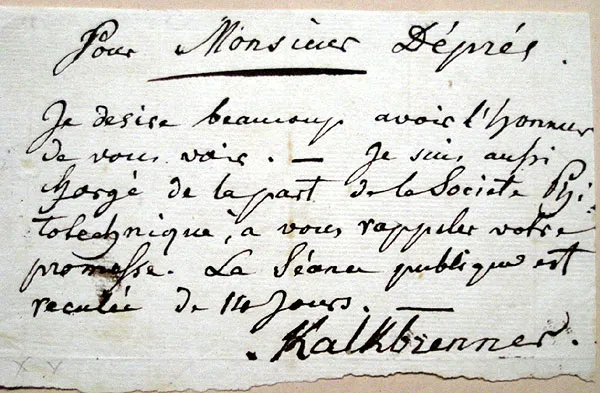 Pour Monsieur Déprés.
Je desire beaucoup avoir l'honneur
de vous voir. — Je suis aussi
chargé de la part de la Societé Phi-
totechnique, a vous rappeler votre
promesse. La Séance publique est
reculée de 14 Jours. —
Kalkbrenner.